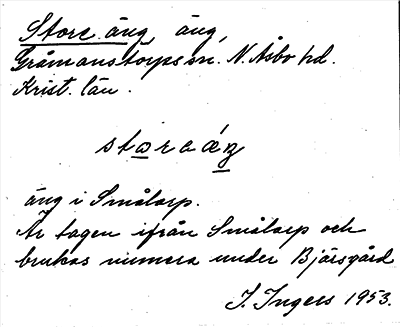 Store äng äng,
Gråmanstorps sn. N. Åsbo hd.
Krist. län.
äng i Smålarp.
Är tagen ifrån Smålarp och
brukas numera under Bjärsgård
I. Ingers 1953.